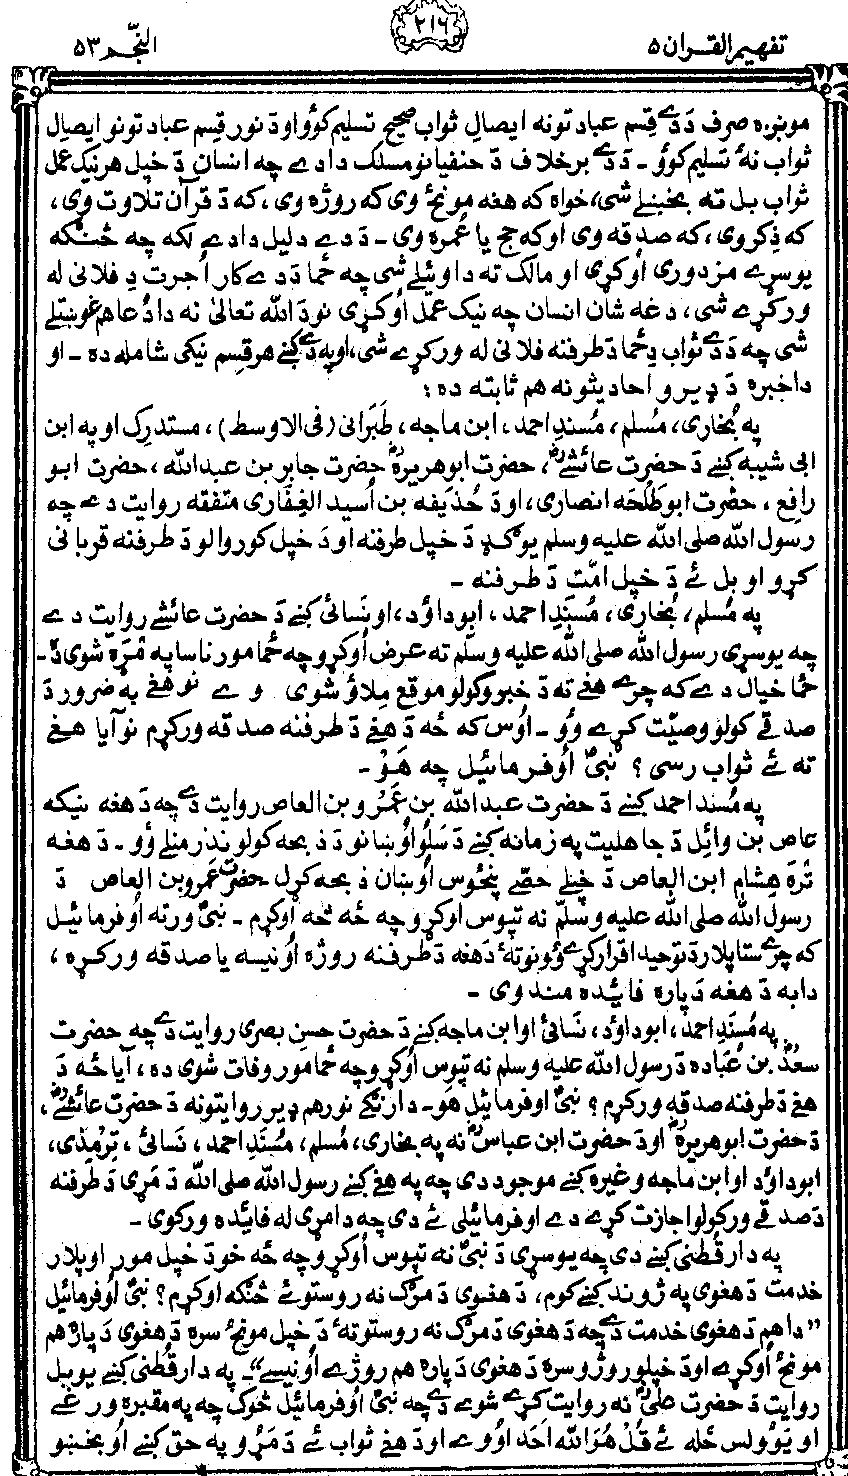 تفهیم القرآن ۵
۲۱۶
النّجم ۵۳
مونږه صرف دَ دَے قِسم عبادتونه ایصالِ ثواب صحیح تسلیم کوؤ او دَ نور قِسم عبادتونو ایصال
ثواب نهٔ تسلیم کوؤ ـ دَ دَے برخلاف دَ حنفیانو مسلک دا دے چه انسان دَ خپل هر نیک عمل
ثواب بل ته بخښلے شی، خواه که هغه مونځ وی که روژه وی، که دَ قرآن تلاوت وی،
که ذِکر وی، که صدقه وی او که حج یا عُمره وی ـ دَ دے دلیل دا دے لکه چه څنګه
یو سړے مزدوری اُوکړی او مالک ته دا وئیلے شی چه ځما دَ دے کار اُجرت دِ فلانی له
ورکړے شی، دغه شان انسان چه نیک عمل اُوکړی نو دَ الله تعالیٰ نه دا دُعا هم غوښتلے
شی چه دَ دے ثواب دِ ځما دَ طرفنه فلانی له ورکړے شی، او په دے کښے هر قِسم نیکی شامله ده ـ او
دا خبره دَ ډیرو احادیثونه هم ثابته ده:
په بُخاری، مُسلم، مُسندِ احمد، ابن ماجه، طَبَرانی (فی الاوسط)، مستدرک او په ابن
ابی شیبه کښے دَ حضرت عائشےؓ، حضرت ابوهریرهؓ حضرت جابر بن عبدالله، حضرت ابو
رافِع، حضرت ابوطَلحَه انصاری، او دَ حُذیفه بن اُسید الغِفاری متفقه روایت دے چه
رسول الله صلی الله علیه وسلم یو ګډ دَ خپل طرفنه او دَ خپل کور والو دَ طرفنه قربانی
کړو او بل ئے دَ خپل امّت دَ طرفنه ـ
په مُسلم، بُخاری، مُسندِ احمد، ابوداوٗد، او نَسائی کښے دَ حضرت عائشے روایت دے
چه یو سړی رسول الله صلی الله علیه وسلّم ته عرض اُوکړو چه ځما مور ناساپه مَړه شوی ده ـ
ځما خیال دے که چرے هغے ته دَ خبرو کولو موقع مِلاؤ شوی وے نو هغے به ضرور دَ
صدقے کولو وصیّت کړے وؤ ـ اوُس که څه دَ هغے دَ طرفنه صدقه ورکړم نو آیا هغے
ته ئے ثواب رسی؟ نبیؐ اُوفرمائیل چه هَوْ ـ
په مُسند احمد کښے دَ حضرت عبدالله بن عَمرْو بن العاص روایت دے چه دَ هغه نیکه
عاص بن وائِل دَ جاهلیت په زمانه کښے دَ سَلُو اوُښانو دَ ذبحه کولو نذر منلے وؤ ـ دَ هغه
تْرهٔ هِشام ابن العاص دَ خپلے حصّے پنځوس اُوښان ذبحه کړل حضرت عَمرو بن العاص دَ
رسول الله صلی الله علیه وسلّم نه تپوس اوکړو چه څه اُوکړم ـ نبیؐ ورته اُوفرمائیل
که چرے ستا پلار دَ توحید اقرار کړے وؤ نو تهٔ دَ هغه دَ طرفنه روژه اُونیسه یا صدقه ورکړه،
دا به دَ هغه دَ پاره فائده مندوی ـ
په مُسندِ احمد، ابوداوٗد، نَسائی او ابن ماجه کښے دَ حضرت حسن بصری روایت دے چه حضرت
سعدؓ بن عُباده دَ رسول الله علیه وسلم نه تپوس اُوکړو چه ځما مور وفات شوی ده، آیا څه دَ
هغے دَ طرفنه صدقه ورکړم؟ نبیؐ اوفرمائیل هو ـ دا رنګے نور هم ډیر روایتونه دَ حضرت عائشےؓ،
دَ حضرت ابوهریرهؓ او دَ حضرت ابن عباسؓ نه په بخاری، مُسلم، مُسَندِ احمد، نَسائی، تِرمْذی،
ابوداوٗد او ابن ماجه وغیره کښے موجود دی چه په هغے کښے رسول الله صلی الله دَ مَړی دَ طرفنه
دَ صدقے ورکولو اجازت کړے دے او فرمائیلی ئے دی چه دا مړی له فائده ورکوی ـ
په دارقُطنی کښے دی چه یو سړی دَ نبیؐ نه تپوس اُوکړو چه څه خو دَ خپل مور او پلار
خدمت دَ هغوی په ژوند کښے کوم، دَ هغوی دَ مرګ نه روستو ئے څنګه اوکړم؟ نبیؐ اُوفرمائیل
"دا هم دَ هغوی خدمت دے چه دَ هغوی دَ مرګ نه روستو تهٔ دَ خپل مونځ سره دَ هغوی دَ پاره هم
مونځ اُوکړے او دَ خپلو روژو سره دَ هغوی دَ پاره هم روژے اُونیسے" ـ په دارقُطنی کښے یو بل
روایت دَ حضرت علیؓ نه روایت کړے شوے دے چه نبیؐ اُوفرمائیل څوک چه په مقبره ورځی
او یوولس ځله ئے قُلْ هُوَ الله اَحَد اوُوے او دَ هغے ثواب ئے دَ مَړو په حق کښے اوُبخښو